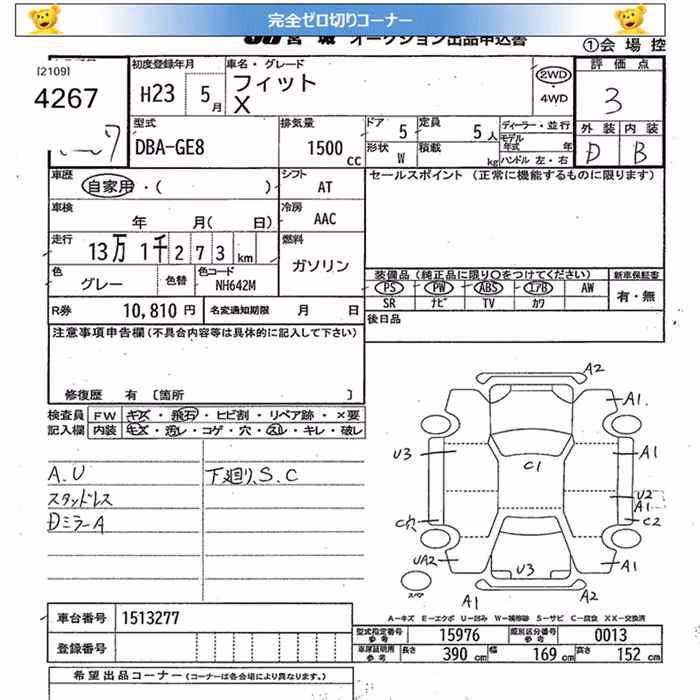 完全ゼロ切りコーナー
JU 宮城 オークション出品申込書
①会場控
[2109]
4267
初度登録年月
H23 5月
車名・グレード
フィット
X
2WD
・
4WD
評価点
3
型式
DBA-GE8
排気量
1500 cc
ドア 5
定員 5人
形状 W
積載 kg
ディーラー・並行
モデル年式 年
ハンドル 左・右
外装 内装
D B
車歴
自家用・( )
シフト AT
セールスポイント (正常に機能するものに限ります)
車検 年 月( 日)
冷房 AAC
走行
13万1千273km
燃料
ガソリン
色 グレー
色替
色コード NH642M
装備品(純正品に限り○をつけてください)
新車保証書
PS PW ABS エアB AW
有・無
SR ナビ TV カワ
R券 10,810円
名変通知期限 月 日
後日品
注意事項申告欄(不具合内容等は具体的に記入して下さい)
修復歴 有 [箇所 ]
検査員 FW キズ・飛石・ヒビ割・リペア跡・×要
記入欄 内装 キズ・汚レ・コゲ・穴・スレ・キレ・破レ
A.U
スタッドレス
Dミラー A
下廻り、S.C
A2
A1
U3
C1
A1
U2
A1
C穴
C2
UA2
U3
A1
スペア
A1
A2
A－キズ E－エクボ U－凹み W－補修跡 S－サビ C－腐食 XX－交換済
車台番号 1513277
登録番号
型式指定番号 参考 15976
類別区分番号 参考 0013
車庫証明用 参考 長さ 390 cm 幅 169 cm 高さ 152 cm
希望出品コーナー(コーナーは各会場により異なります。)